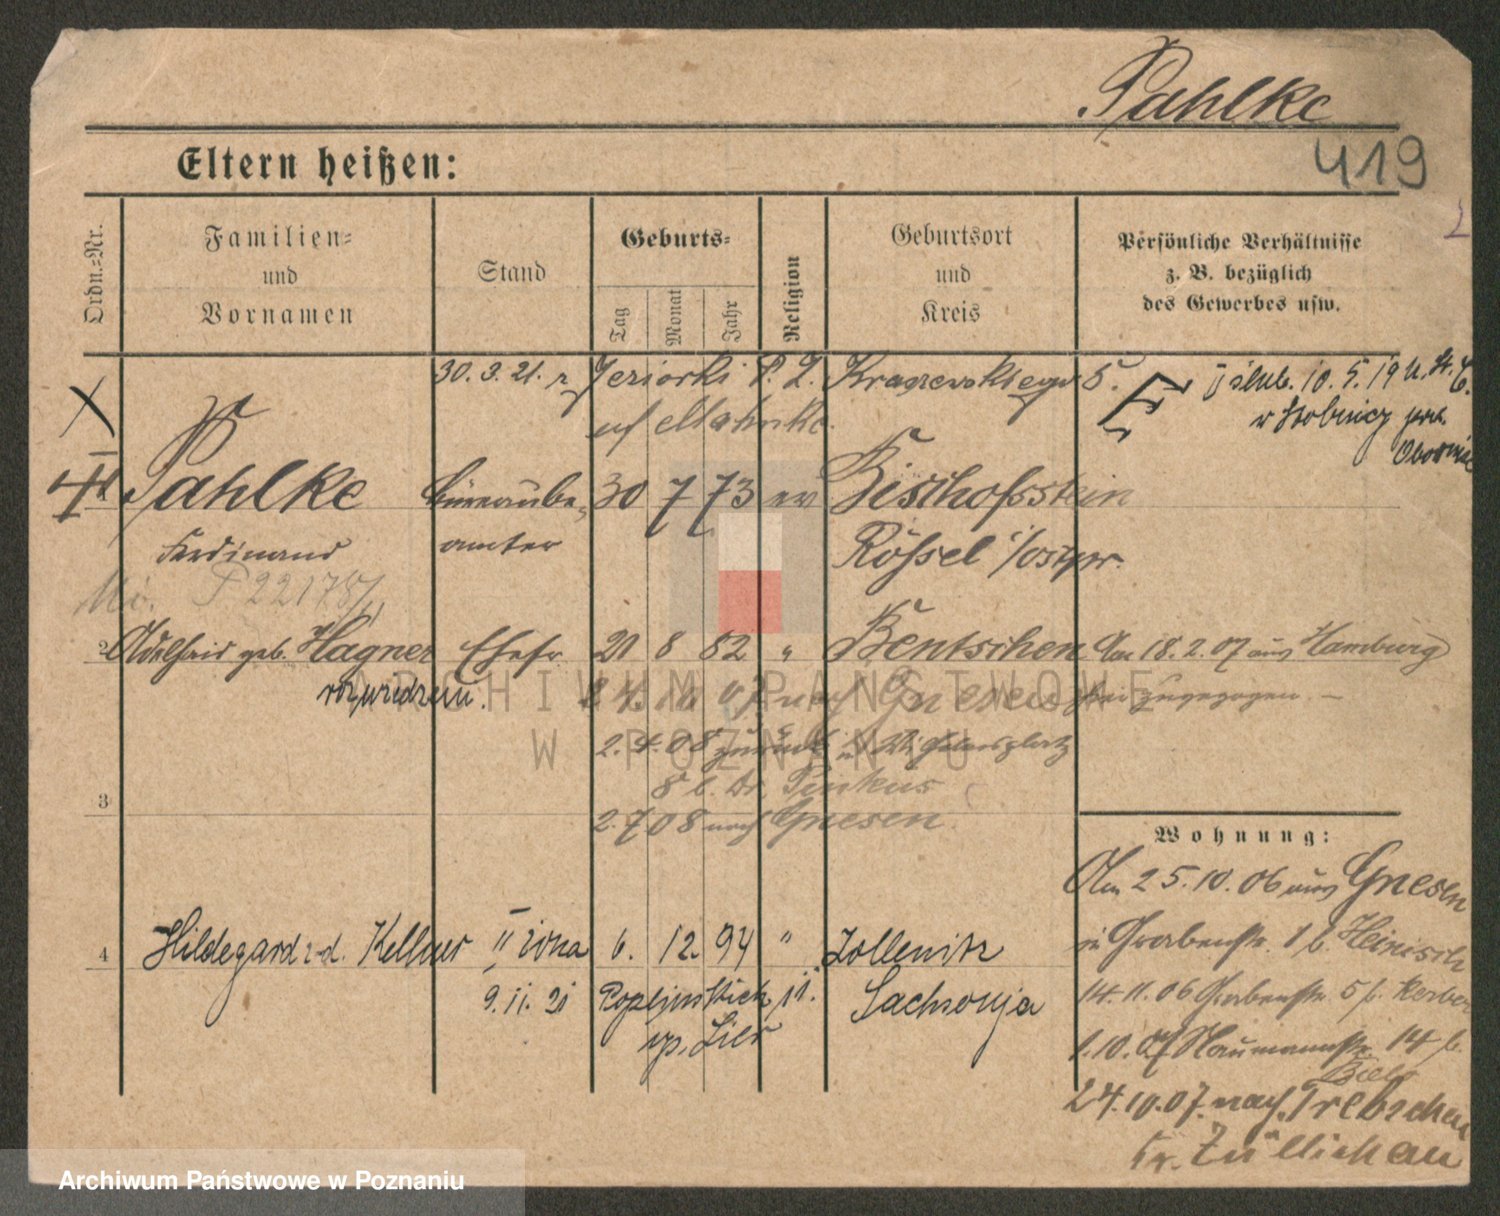 Pahlke
419
Eltern heißen:
Ordn.-Nr.
Familien- und Vornamen
Stand
Geburts-
Tag
Monat
Jahr
Religion
Geburtsort und Kreis
Persönliche Verhältnisse z. B. bezüglich des Gewerbes usw.
30.3.21. z Jeziorki P. Z. Kraszewskiego 5.
I ślub. 10.5.19 U. St. C.
w
Pahlke
Büreaube-
30 7 73 ev
Bischofsstein
Ferdinand
amter
Rössel i/Ostpr.
P 22178/
2 Adelheid geb. Hagner Ehefr 20 8 82 " Bentschen Am 18.2.07 aus Hamburg
zugezogen. —
nach Gnesen
2.4.08 zurück Wilhelmsplatz
8 b. Dr. Pinkus
3
2.7.08 nach Gnesen
Wohnung:
Am 25.10.06 aus Gnesen
in Grabenstr. 1 b. Heinisch
4 Hildegard z d. Kellner II żona 6. 12. 94 " Zollenitz
9.11.21
Sachsonja
14.11.06 Grabenstr. 5 b. Kerber
1.10.07 Naumannstr. 14 b.
24.10.07. nach Trebschen
Kr. Züllichau
ARCHIWUM PAŃSTWOWE
W POZNANIU
Archiwum Państwowe w Poznaniu